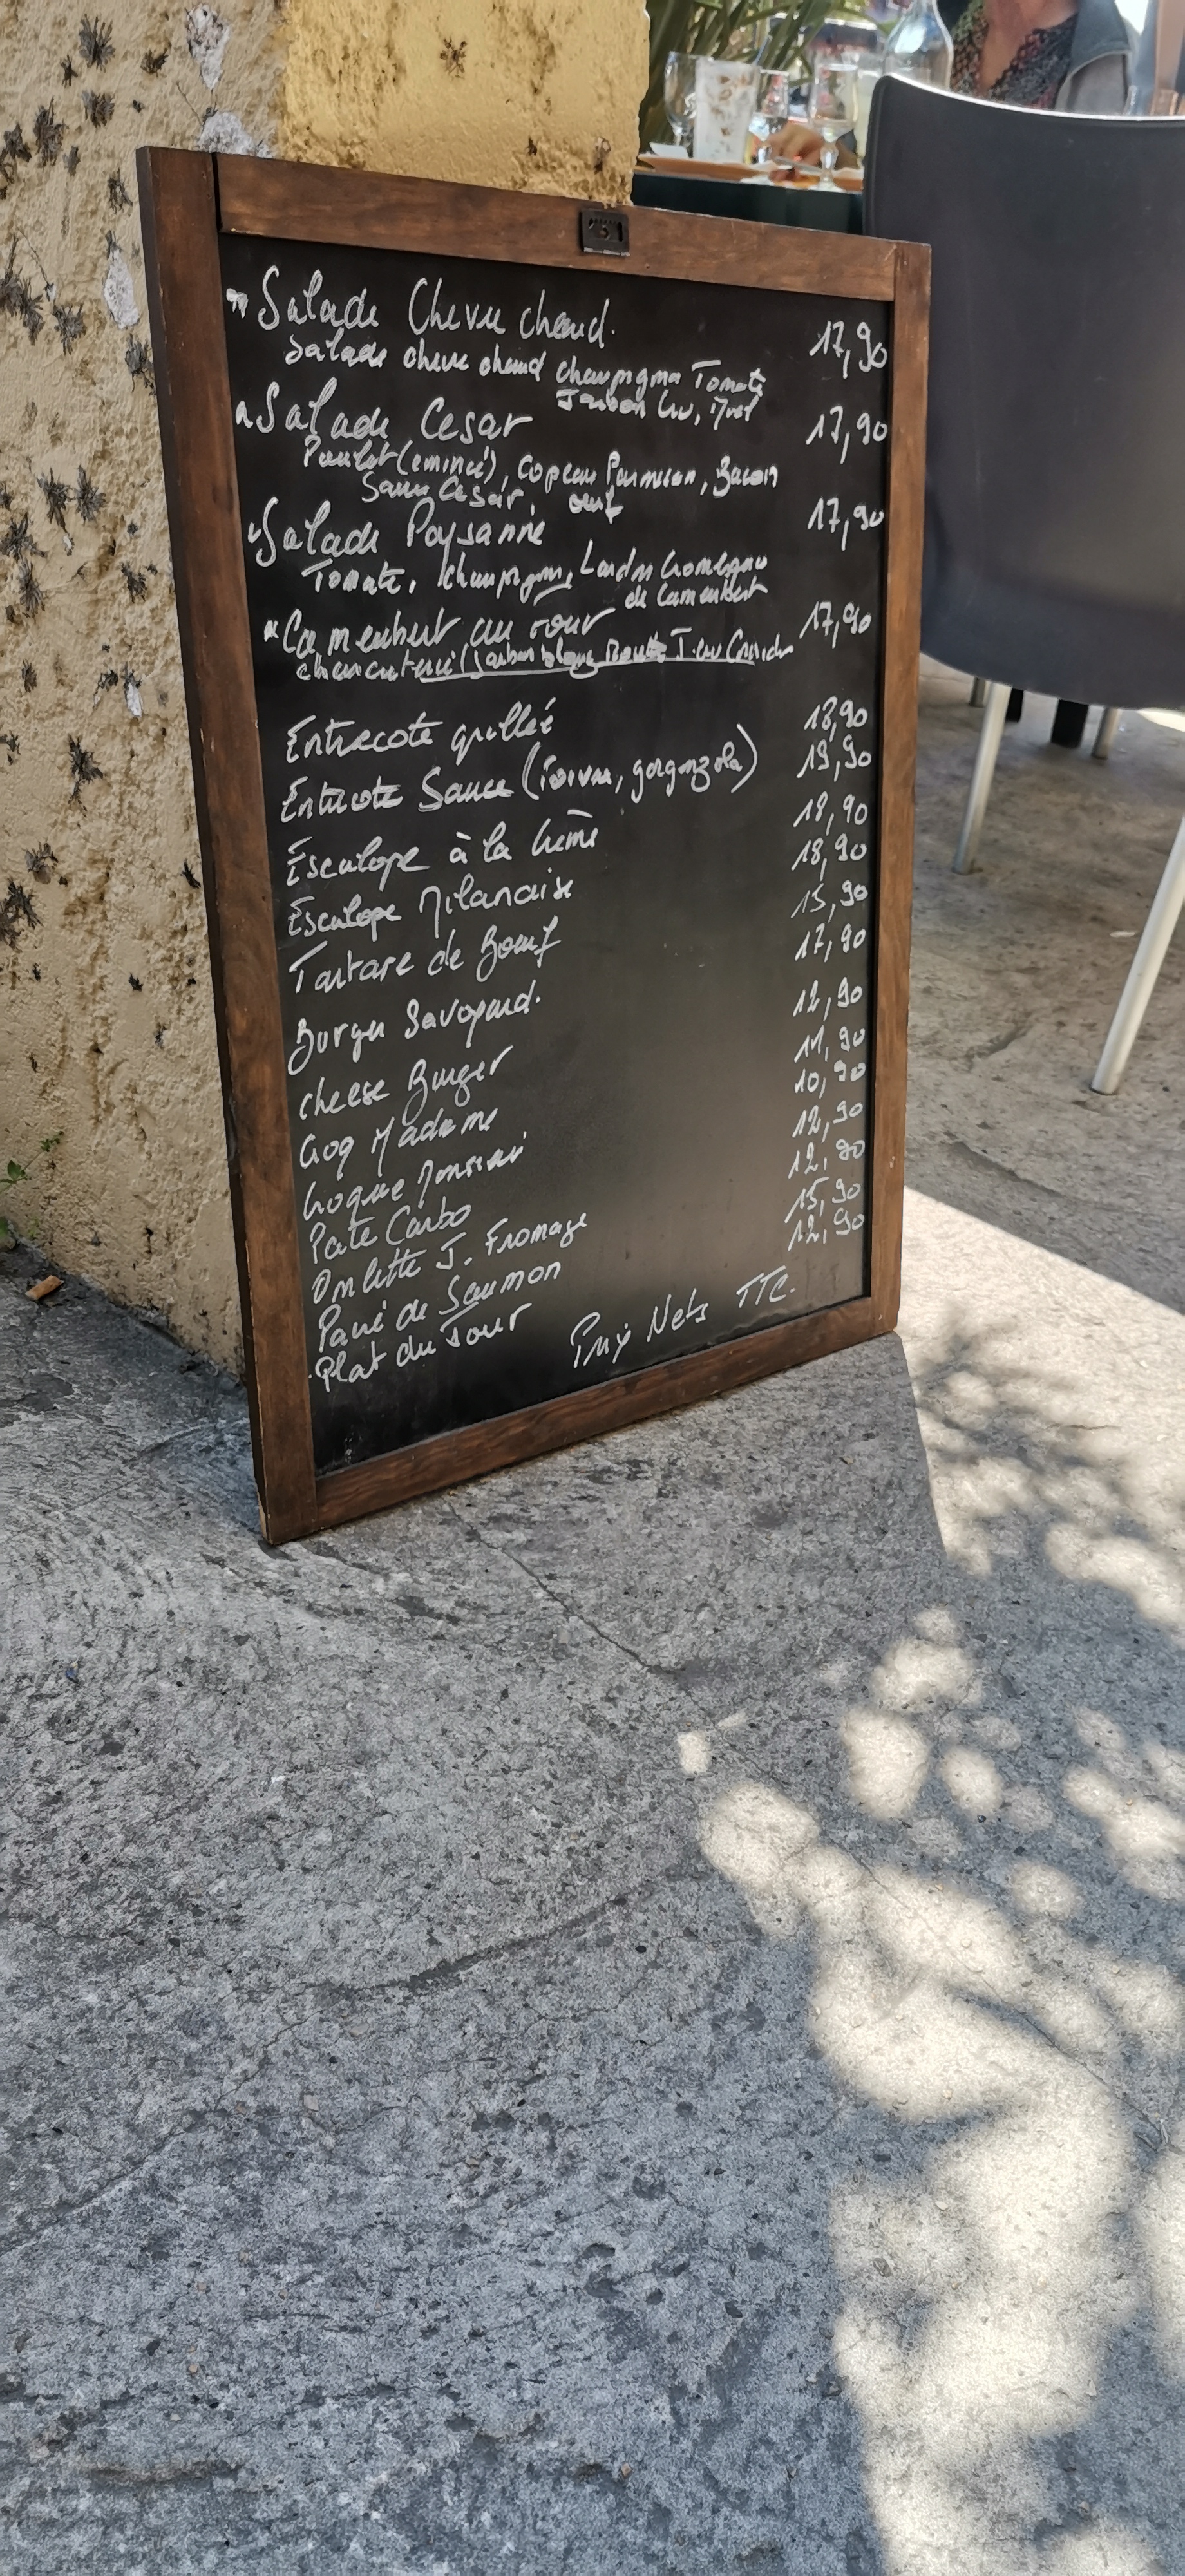 Salade Chevre chaud. 17,90
Salade chevre chaud champignon Tomate
Jambon Cru, Miel
Salade Cesar 17,90
Poulet (émincé), Copeau Parmesan, Bacon
Sauce Cesar, œuf
Salade Paysanne 17,90
Tomate, champignons, Lardon
de Camembert
Camembert au Four 17,90
charcuterie (Jambon blanc J. cru
Entrecote grillée 18,90
Entrecote Sauce (Poivre, gorgonzola) 19,90
Escalope à la Crème 18,90
Escalope Milanaise 18,90
Tartare de Bœuf 15,90
Burger Savoyard. 17,90
Cheese Burger 12,90
Croq Madame 11,90
Croque Monsieur 10,90
Pate Carbo 12,90
Omlette J. Fromage 12,90
Pavé de Saumon 15,90
Plat du Jour 12,90
Prix Nets TTC.